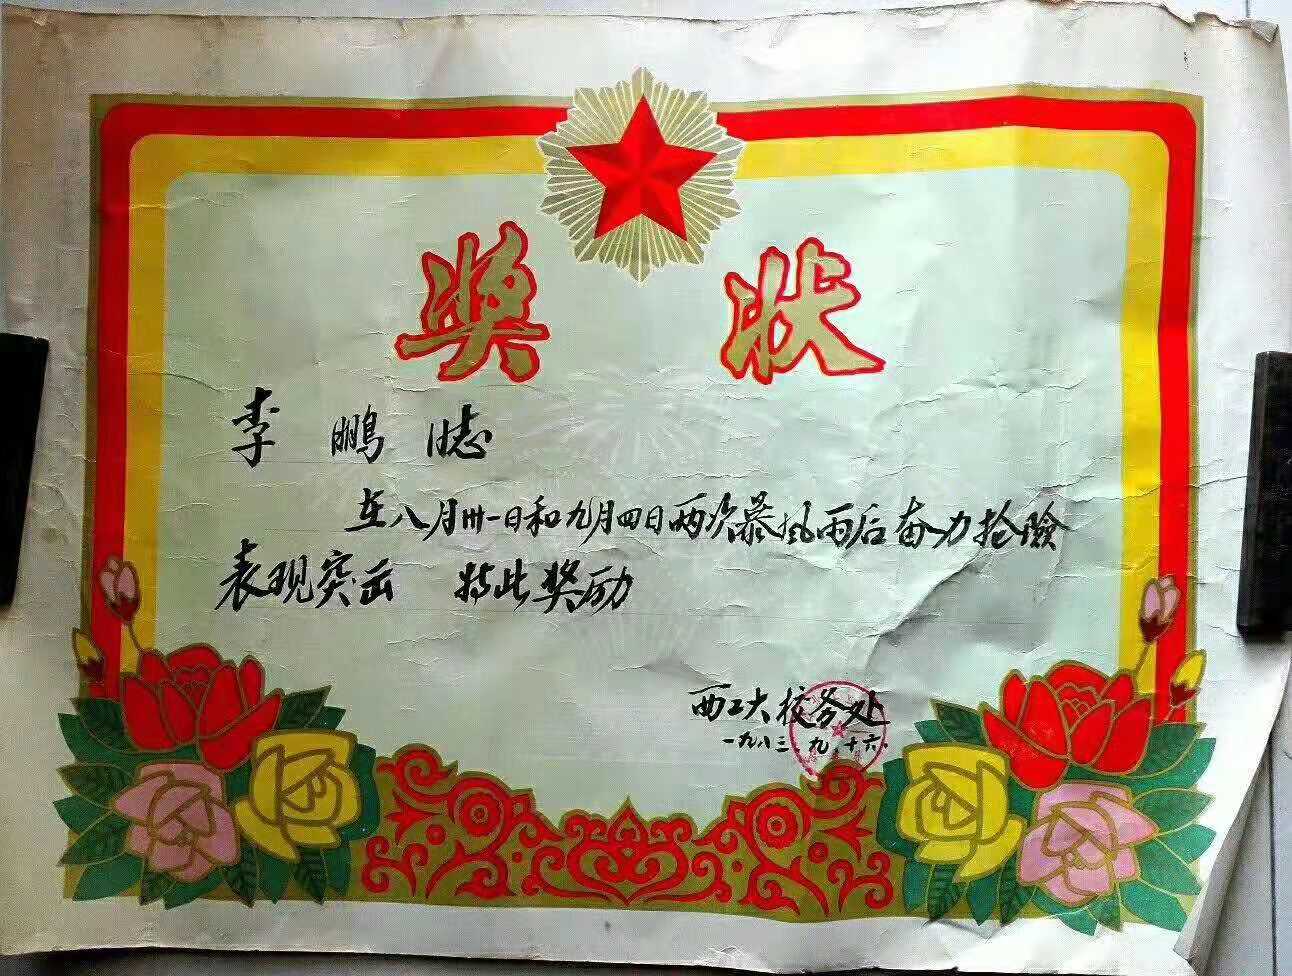 奖状
李鹏志
在八月卅一日和九月四日两次暴风雨后奋力抢險
表现突出 特此奖励
西工大校务处
一九八三.九.十六.